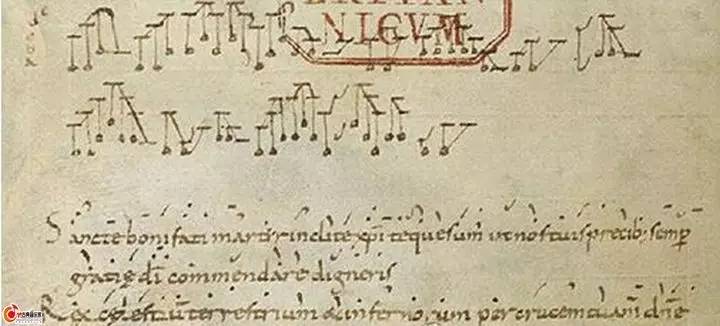 NICVM
Sancte bonifati martir inclite xp̄i te quesum̄ ut nos tuis precib; semp̄
gratiȩ dī commendare digneris
Rex cȩlestiū terrestrium per crucem tuam dn̄e